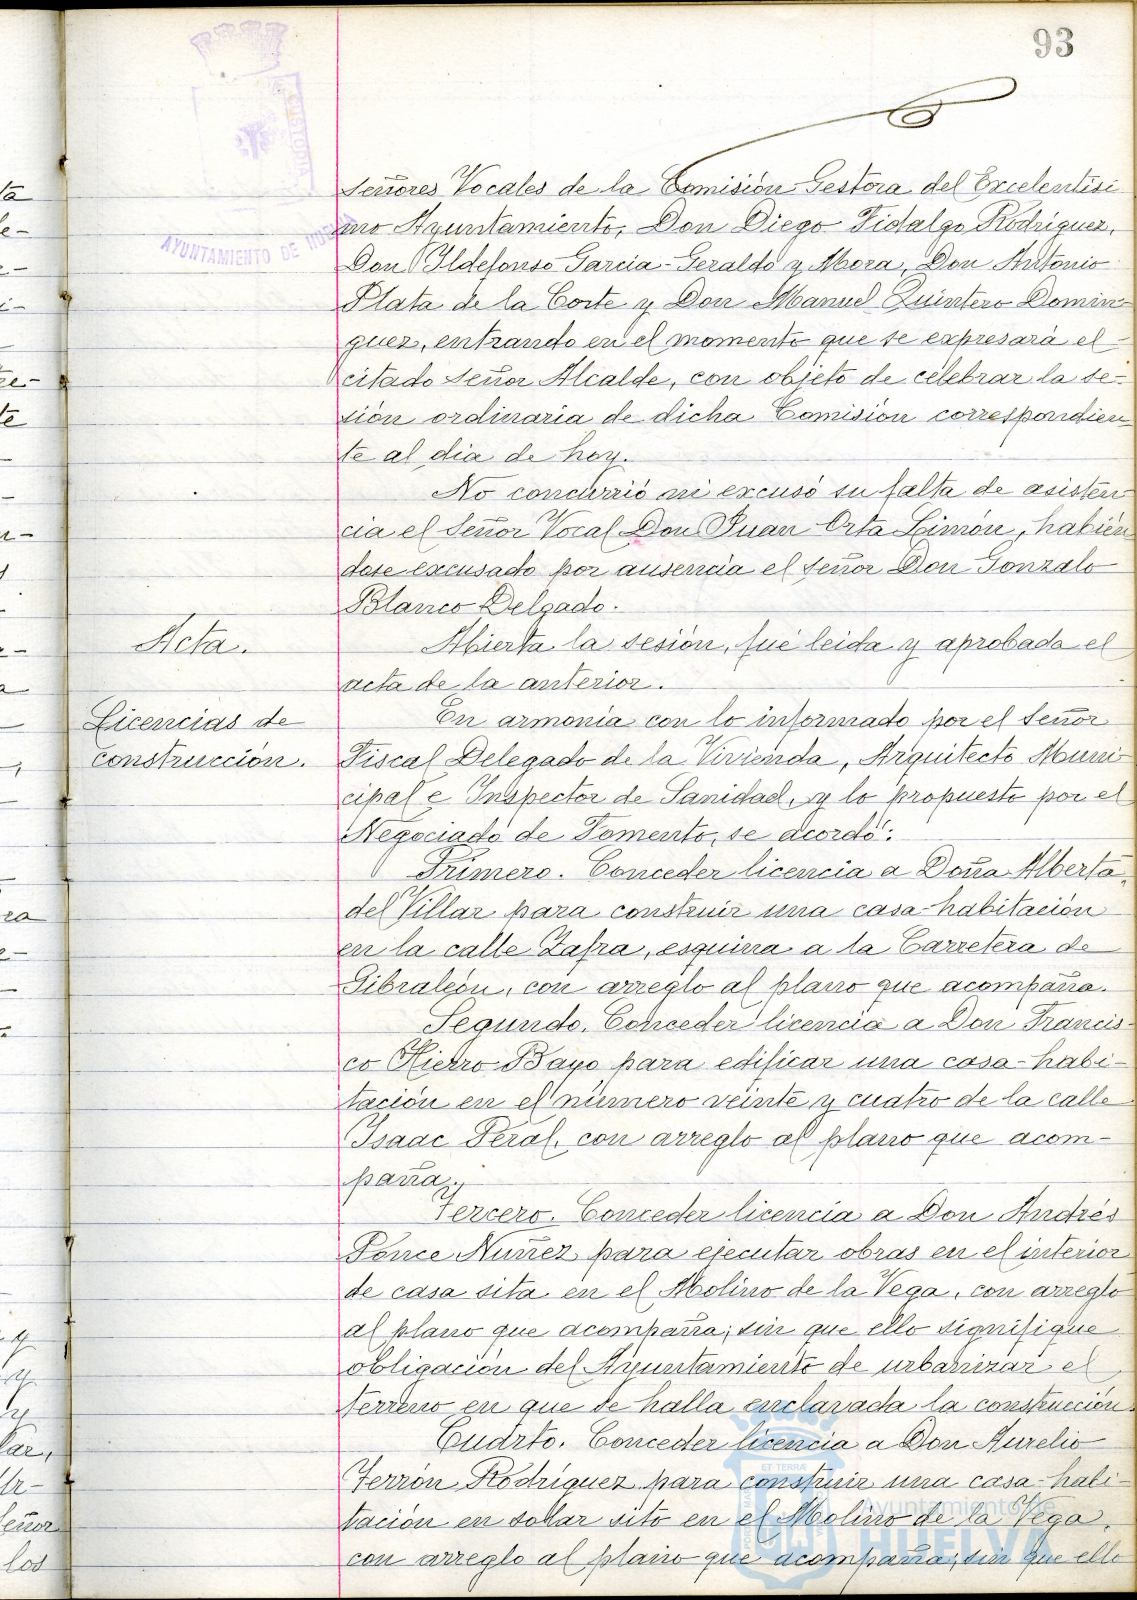 93
CUSTODIA
AYUNTAMIENTO DE HUE
señores Vocales de la Comisión Gestora del Excelentísi
mo Ayuntamiento, Don Diego Fidalgo Rodríguez,
Don Ildefonso García-Geraldo y Mora, Don Antonio
Plata de la Corte y Don Manuel Quintero Domin-
guez, entrando en el momento que se expresará el
citado señor Alcalde, con objeto de celebrar la se-
sión ordinaria de dicha Comisión correspondien
te al dia de hoy.
No concurrió ni excusó su falta de asisten
cia el Señor Vocal Don Juan Orta Limón, habién
dose excusado por ausencia el señor Don Gonzalo
Blanco Delgado.
Acta.
Abierta la sesión, fué leida y aprobada el
acta de la anterior.
Licencias de
construcción.
En armonía con lo informado por el Señor
Fiscal Delegado de la Vivienda, Arquitecto Muni
cipal e Inspector de Sanidad, y lo propuesto por el
Negociado de Fomento, se acordó:
Primero. Conceder licencia a Doña Alberta
del Villar para construir una casa-habitación
en la calle Zafra, esquina a la Carretera de
Gibraleón, con arreglo al plano que acompaña.
Segundo. Conceder licencia a Don Francis-
co Hierro Bayo para edificar una casa-habi-
tación en el número veinte y cuatro de la calle
Isaac Peral, con arreglo al plano que acom-
paña.
Tercero. Conceder licencia a Don Andrés
Ponce Nuñez para ejecutar obras en el interior
de casa sita en el Molino de la Vega, con arreglo
al plano que acompaña; sin que ello signifique
obligación del Ayuntamiento de urbanizar el
terreno en que se halla enclavada la construcción.
Cuarto. Conceder licencia a Don Aurelio
Ferrón Rodríguez para construir una casa-habi-
tación en solar sito en el Molino de la Vega,
con arreglo al plano que acompaña; sin que ello
Ayuntamiento de
HUELVA